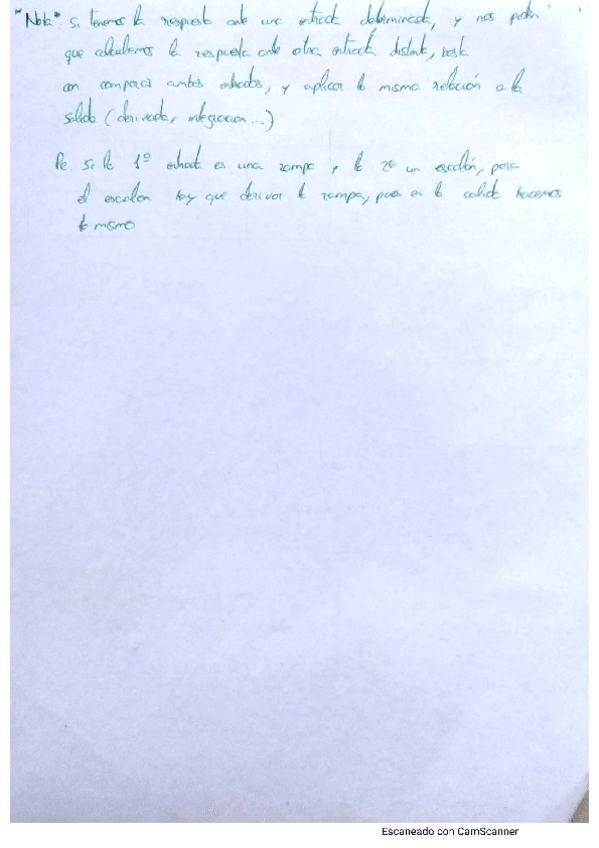 "Nota": Si tenemos la respuesta ante una entrada determinada, y nos piden
que calculemos la respuesta ante otra entrada distinta, basta
con comparar ambas entradas, y aplicar la misma relación a la
salida (derivada, integración...)
Pe. Si la 1º entrada es una rampa y la 2ª un escalón, para
el escalon hay que derivar la rampa, pues en la salida hacemos
lo mismo
Escaneado con CamScanner